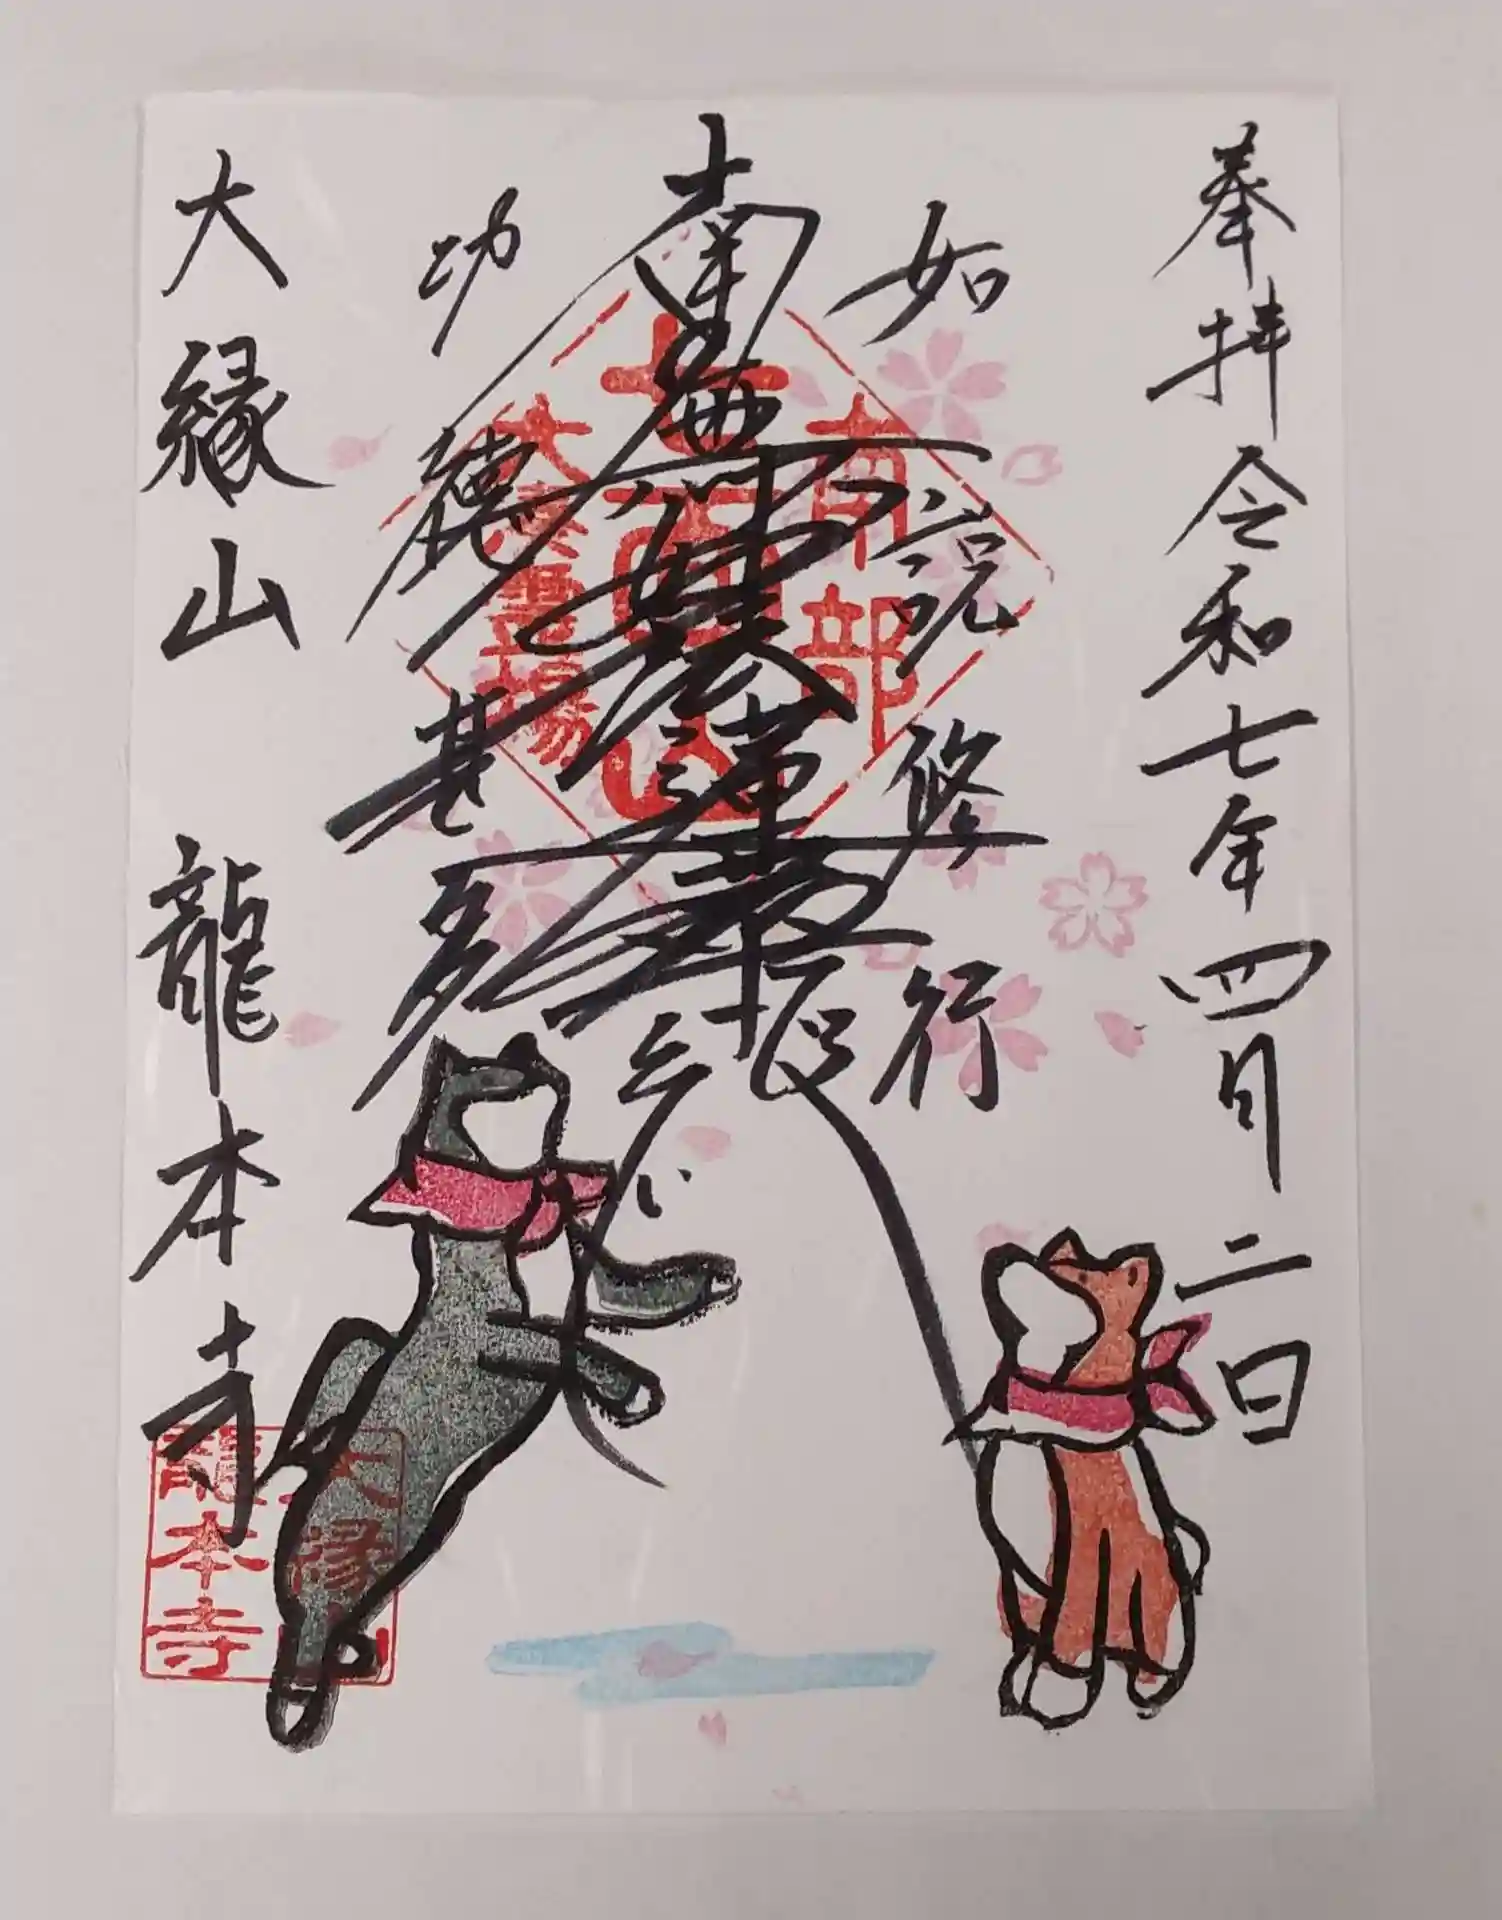 奉拝 令和七年四月二日
如説修行
南無妙法蓮華経
功徳甚多
大縁山 龍本寺
南部
大黒霊場
大縁山
龍本寺